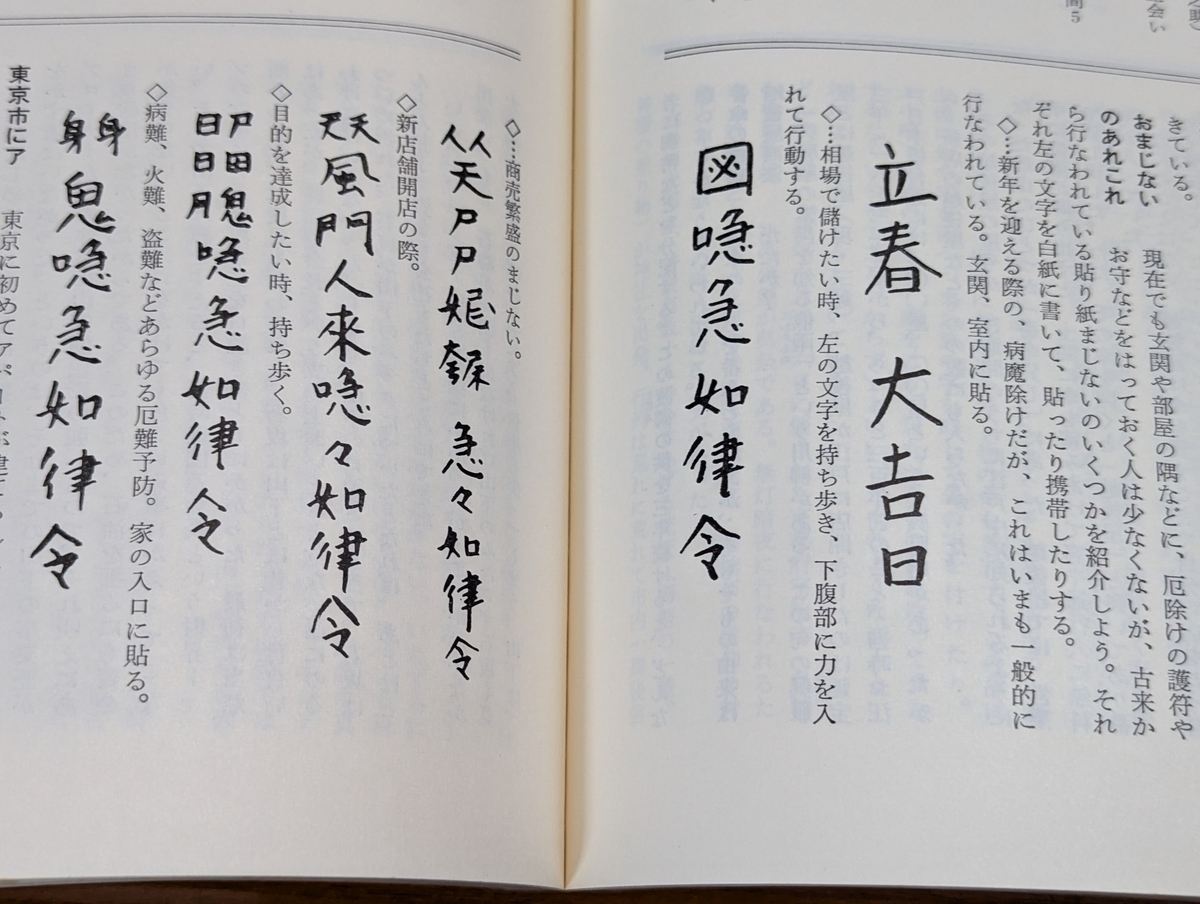 きている。
おまじない
のあれこれ
現在でも玄関や部屋の隅などに、厄除けの護符や
お守などをはっておく人は少なくないが、古来か
ら行なわれている貼り紙まじないのいくつかを紹介しよう。それ
ぞれ左の文字を白紙に書いて、貼ったり携帯したりする。
◇…新年を迎える際の、病魔除けだが、これはいまも一般的に
行なわれている。玄関、室内に貼る。
立春大吉日
◇…相場で儲けたい時、左の文字を持ち歩き、下腹部に力を入
れて行動する。
急如律令
◇…商売繁盛のまじない。
急々如律令
◇新店舗開店の際。
風門人來 々如律令
◇目的を達成したい時、持ち歩く。
急如律令
◇病難、火難、盗難などあらゆる厄難予防。家の入口に貼る。
身身鬼 急如律令
東京市にア
東京に初めてア